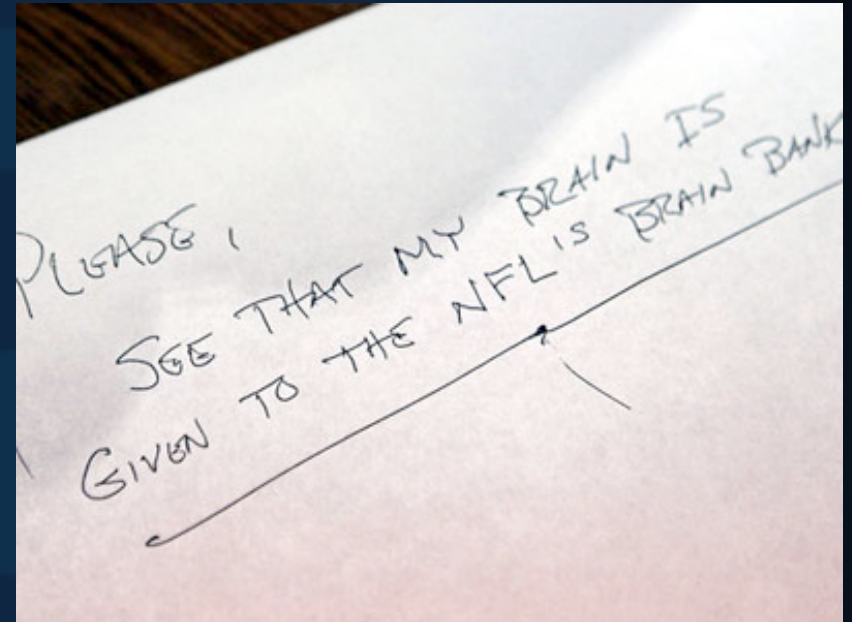 PLEASE,
SEE THAT MY BRAIN IS
GIVEN TO THE NFL'S BRAIN BANK